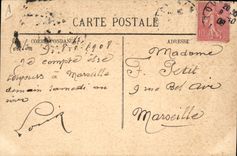 CARTE POSTALE
CORRESPONDANCE
ADRESSE
1908
Je compte être
toujours à Marseille
demain samedi au
soir
Louis
Madame
F. Petit
9 rue Bel air
Marseille